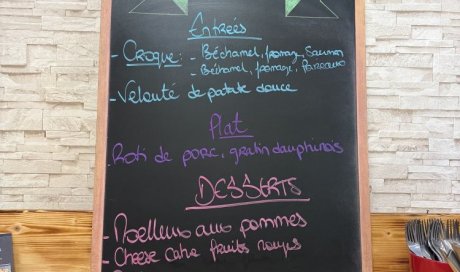 Entrées
- Croque: - Béchamel, fromage, Saumon
- Béchamel, fromage, Poireaux
- Velouté de patate douce
Plat
- Roti de porc, gratin dauphinois
DESSERTS
- Moelleux aux pommes
- Cheese Cake fruits rouges